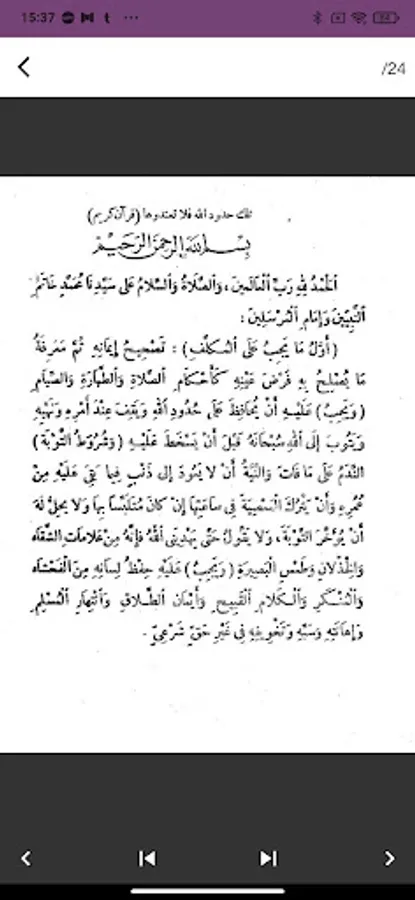 15:37
84
/24
تلك حدود الله فلا تعتدوها (قرآن كريم)
بِسْمِ اللهِ الرَّحْمٰنِ الرَّحِيْمِ
اَلْحَمْدُ لِلّٰهِ رَبِّ الْعَالَمِينَ، وَالصَّلَاةُ وَالسَّلَامُ عَلَى سَيِّدِنَا مُحَمَّدٍ خَاتَمِ
النَّبِيِّينَ وَإِمَامِ الْمُرْسَلِينَ:
(أَوَّلُ مَا يَجِبُ عَلَى الْمُكَلَّفِ): تَصْحِيحُ إِيمَانِهِ ثُمَّ مَعْرِفَةُ
مَا يُصْلِحُ بِهِ فَرْضَ عَيْنِهِ كَأَحْكَامِ الصَّلَاةِ وَالطَّهَارَةِ وَالصِّيَامِ
(وَيَجِبُ) عَلَيْهِ أَنْ يُحَافِظَ عَلَى حُدُودِ اللهِ وَيَقِفَ عِنْدَ أَمْرِهِ وَنَهْيِهِ
وَيَتُوبَ إِلَى اللهِ سُبْحَانَهُ قَبْلَ أَنْ يَسْخَطَ عَلَيْهِ (وَشُرُوطُ التَّوْبَةِ)
النَّدَمُ عَلَى مَا فَاتَ وَالنِّيَّةُ أَنْ لَا يَعُودَ إِلَى ذَنْبٍ فِيمَا بَقِيَ عَلَيْهِ مِنْ
عُمُرِهِ وَأَنْ يَتْرُكَ الْمَعْصِيَةَ فِي سَاعَتِهَا إِنْ كَانَ مُتَلَبِّسًا بِهَا وَلَا يَحِلُّ لَهُ
أَنْ يُؤَخِّرَ التَّوْبَةَ، وَلَا يَقُولُ حَتَّى يَهْدِيَنِي اللهُ فَإِنَّهُ مِنْ عَلَامَاتِ الشَّقَاءِ
وَالْخِذْلَانِ وَطَمْسِ الْبَصِيرَةِ (وَيَجِبُ) عَلَيْهِ حِفْظُ لِسَانِهِ مِنَ الْفَحْشَاءِ
وَالْمُنْكَرِ وَالْكَلَامِ الْقَبِيحِ وَأَيْمَانِ الطَّلَاقِ وَانْتِهَارِ الْمُسْلِمِ
وَإِهَانَتِهِ وَسَبِّهِ وَتَخْوِيفِهِ فِي غَيْرِ حَقٍّ شَرْعِيٍّ.